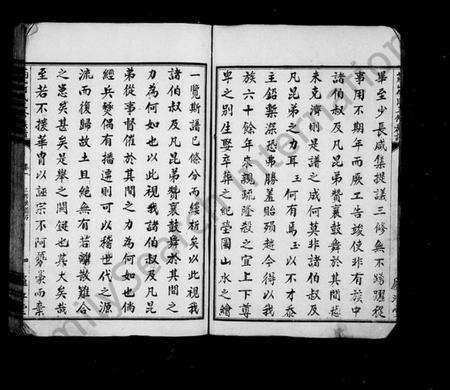 畢至少長咸集提議三修無不踴躍從
事用不期年而厥工告竣使非有族中
諸伯叔及凡昆弟贊襄鼓舞於其間趑
未克濟則是譜之成何莫非諸伯叔及
凡昆弟之力耳玉何有焉玉以不才忝
主鉛槧深恐弗勝蓋貽殞越今得以我
族六十餘年來親疏隆殺之宜上下尊
卑之別生娶卒葬之紀塋圖山水之繪
一覽斯譜已條分而縷析以此視我
諸伯叔及凡昆弟贊襄鼓舞於其間之
力為何如也以此視我諸伯叔及凡昆
弟從事督催於其間之力為何如也倘
經兵燹偶有播遷則可以稽世代之源
流而復歸故土且絕無有若譜散難合
之患矣甚矣是舉之關鍵也其大矣哉
至若不援華冑以誣宗不阿豪而棄
FamilySearch International